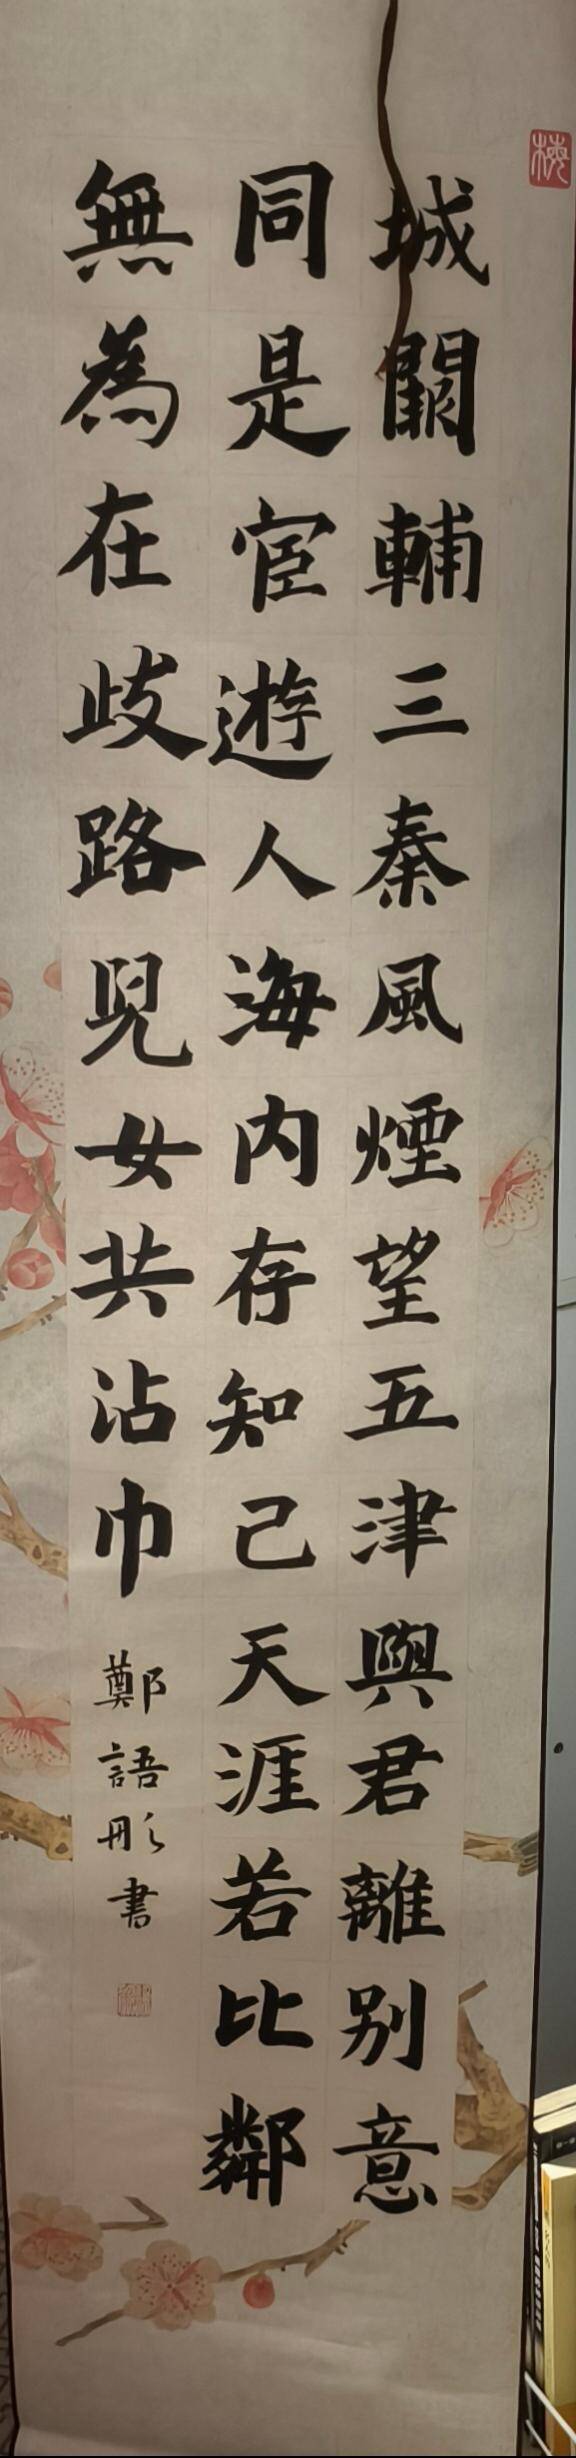 梅
城闕輔三秦風煙望五津與君離别意
同是宦遊人海内存知己天涯若比鄰
無為在歧路兒女共沾巾
鄭語彤書